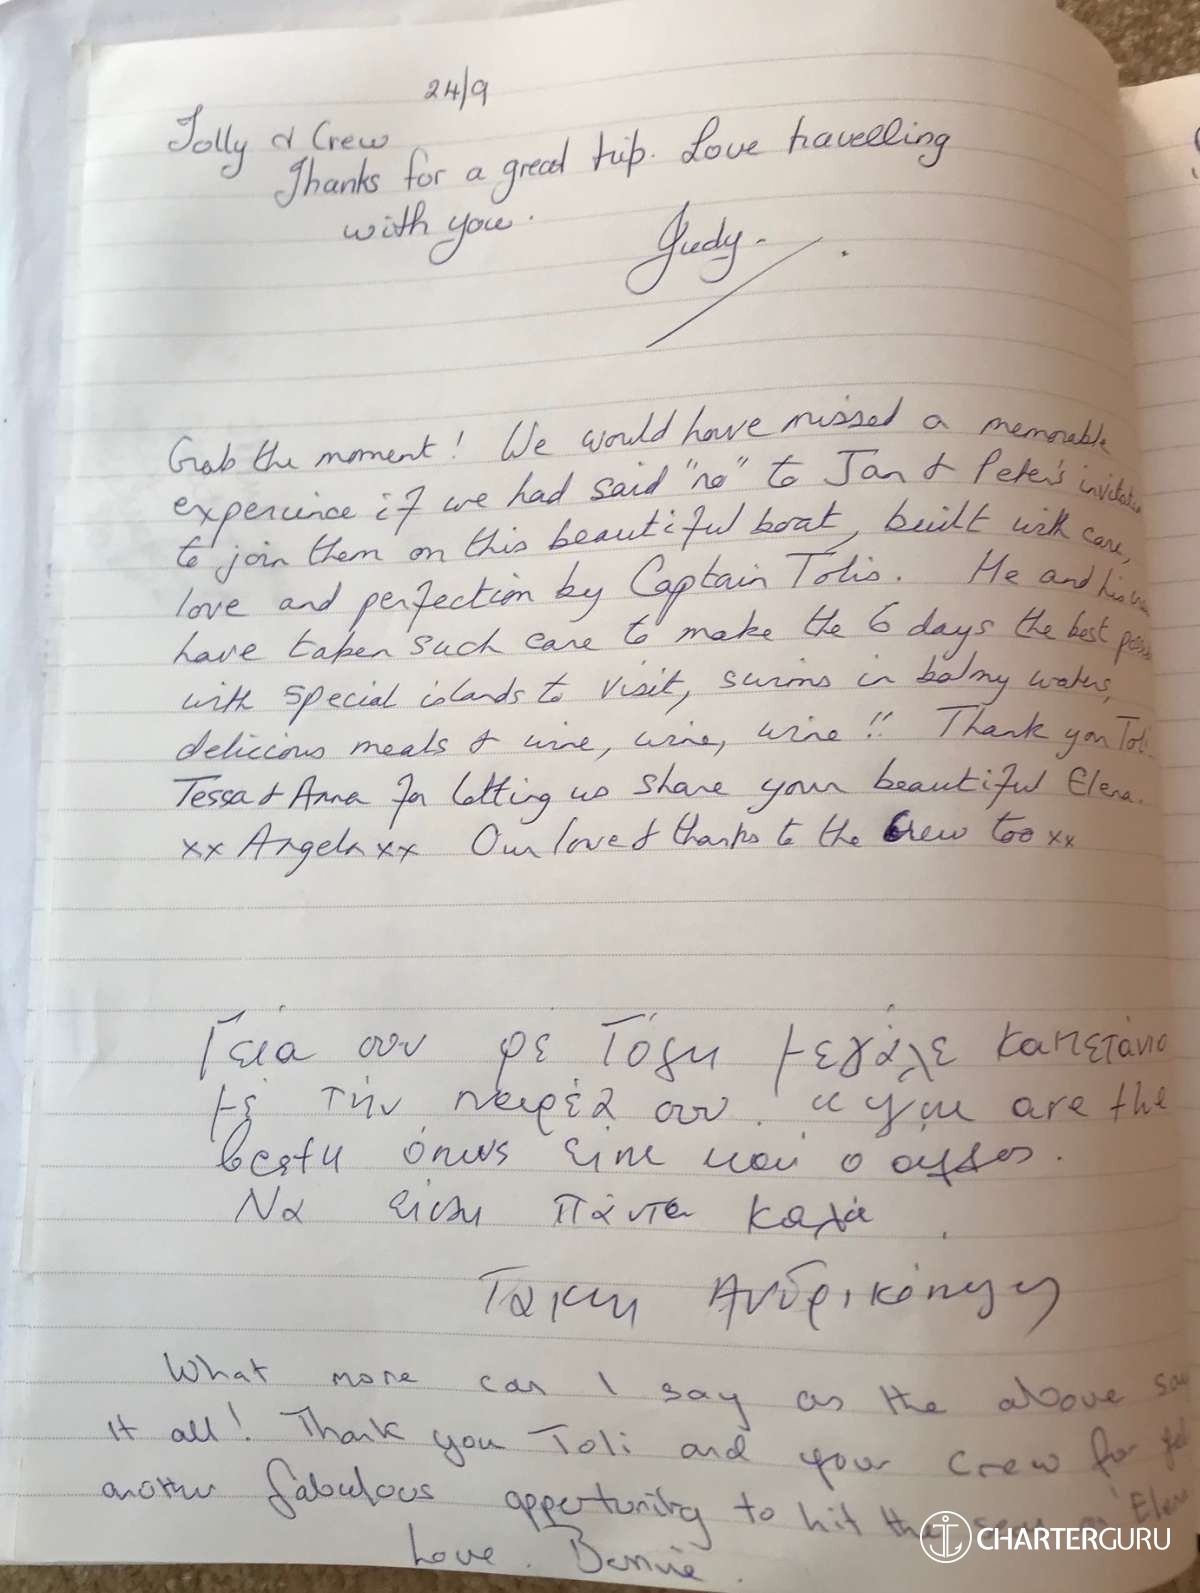 24/9
Tolly & Crew
Thanks for a great trip. Love travelling
with you.
Judy.
Grab the moment! We would have missed a memorable
experience if we had said "no" to Jan & Peter's
to join them on this beautiful boat, built with care,
love and perfection by Captain Tolis. He and his
have taken such care to make the 6 days the best
with special islands to visit, swims in balmy waters,
delicious meals & wine, wine, wine!! Thank you
Tessa & Anna for letting us share your beautiful Elena.
xx Angela xx Our love & thanks to the Crew too xx
Γειά σου ρέ Τόλη μεγάλε καπετάνιο
μέ τήν παρέα σου. are the
όπως είπε και ο
Να είσαι πάντα καλά
Τάκης
What more can I say as the above say
it all! Thank you Toli and your Crew for
another fabulous opportunity to hit the
Love. Bernie.
CHARTERGURU